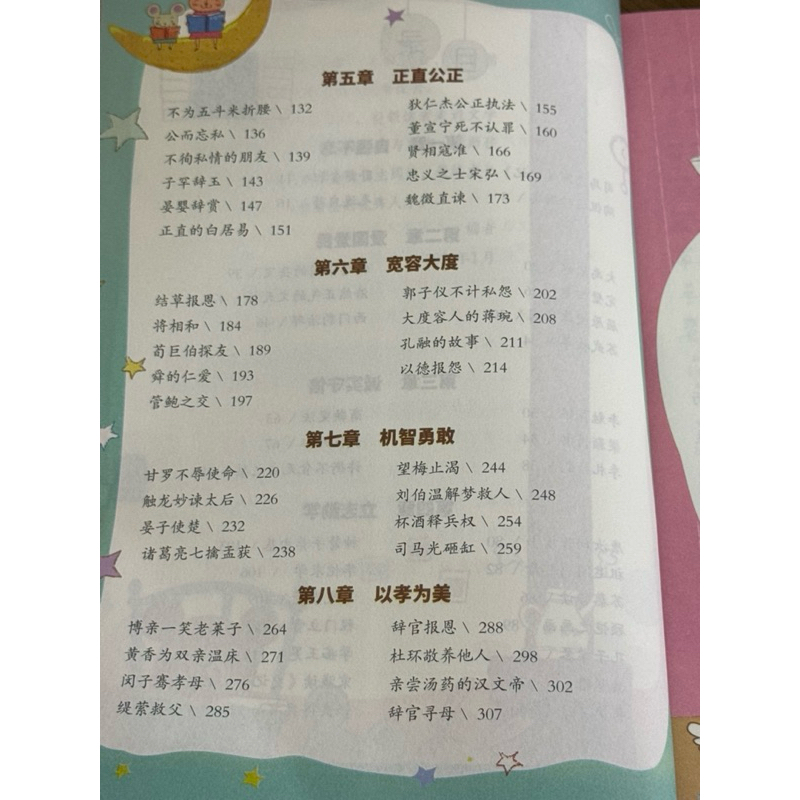 第五章 正直公正
不为五斗米折腰 \ 132
公而忘私 \ 136
不徇私情的朋友 \ 139
子罕辞玉 \ 143
晏婴辞赏 \ 147
正直的白居易 \ 151
狄仁杰公正执法 \ 155
董宣宁死不认罪 \ 160
贤相寇准 \ 166
忠义之士宋弘 \ 169
魏徵直谏 \ 173
第六章 宽容大度
结草报恩 \ 178
将相和 \ 184
荀巨伯探友 \ 189
舜的仁爱 \ 193
管鲍之交 \ 197
郭子仪不计私怨 \ 202
大度容人的蒋琬 \ 208
孔融的故事 \ 211
以德报怨 \ 214
第七章 机智勇敢
甘罗不辱使命 \ 220
触龙妙谏太后 \ 226
晏子使楚 \ 232
诸葛亮七擒孟获 \ 238
望梅止渴 \ 244
刘伯温解梦救人 \ 248
杯酒释兵权 \ 254
司马光砸缸 \ 259
第八章 以孝为美
博亲一笑老莱子 \ 264
黄香为双亲温床 \ 271
闵子骞孝母 \ 276
缇萦救父 \ 285
辞官报恩 \ 288
杜环敬养他人 \ 298
亲尝汤药的汉文帝 \ 302
辞官寻母 \ 307